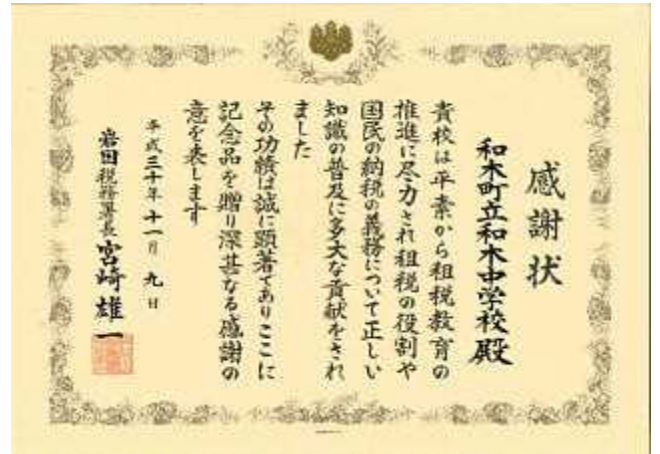 感謝状
和木町立和木中学校殿
貴校は平素から租税教育の
推進に尽力され租税の役割や
国民の納税の義務について正しい
知識の普及に多大な貢献をされ
ました
その功績は誠に顕著でありここに
記念品を贈り深甚なる感謝の
意を表します
平成三十年十一月九日
岩国税務署長宮崎雄一